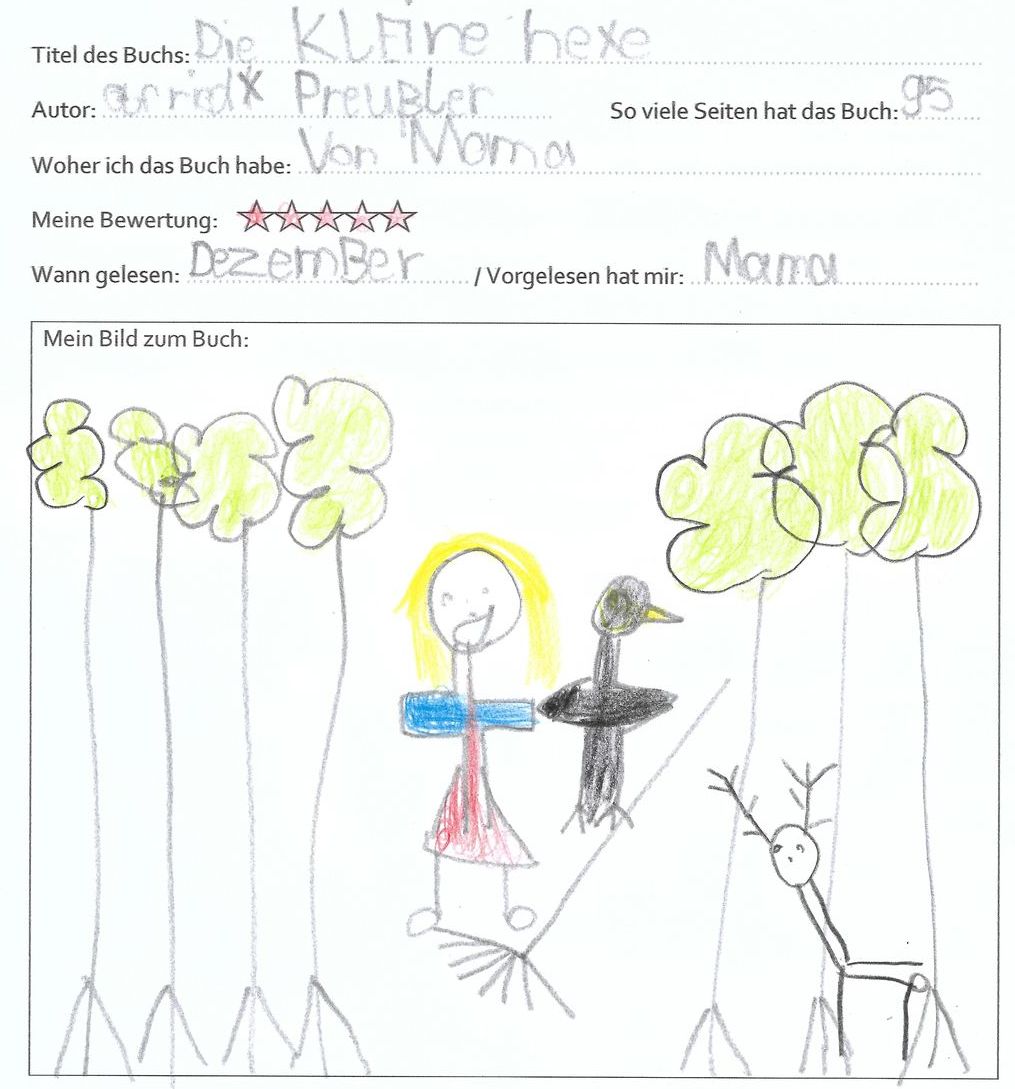 Titel des Buchs: Die KLEine hexe
Autor: arridX Preußler So viele Seiten hat das Buch: 95
Woher ich das Buch habe: Von Mama
Meine Bewertung:
Wann gelesen: DezemBer / Vorgelesen hat mir: Mama
Mein Bild zum Buch: